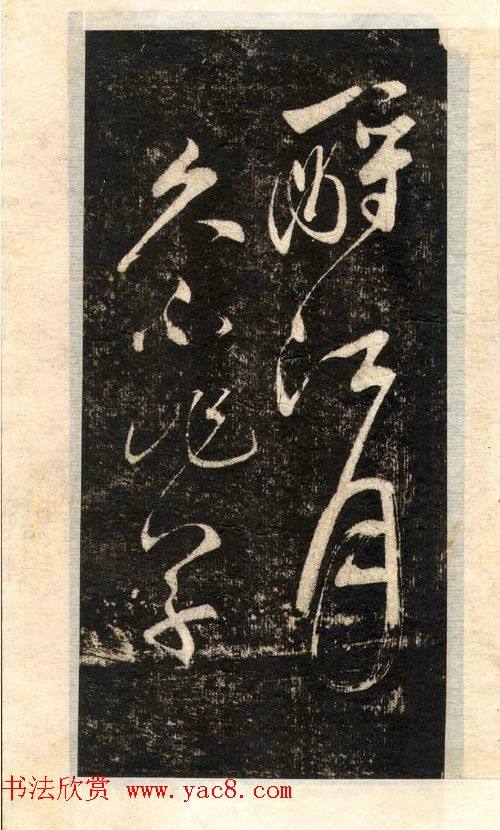 酹江月
久不作草
书法欣赏 www.yac8.com